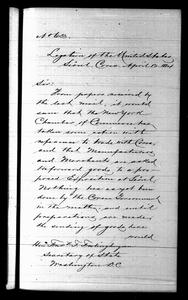 Legation of the United States,
Seoul, Corea, April 12, 1884
Sir:
From papers received by
the last mail, it would
seem that the New York
Chamber of Commerce has
taken some action with
reference to trade with Corea,
and that Manufacturers
and Merchants are asked
to forward goods, to a pro-
posed Exposition at Seoul.
Nothing has as yet been
done by the Corean Government
in the matter, and until
preparations are made,
the sending of goods here
would
Secretary of State
Washington D.C.